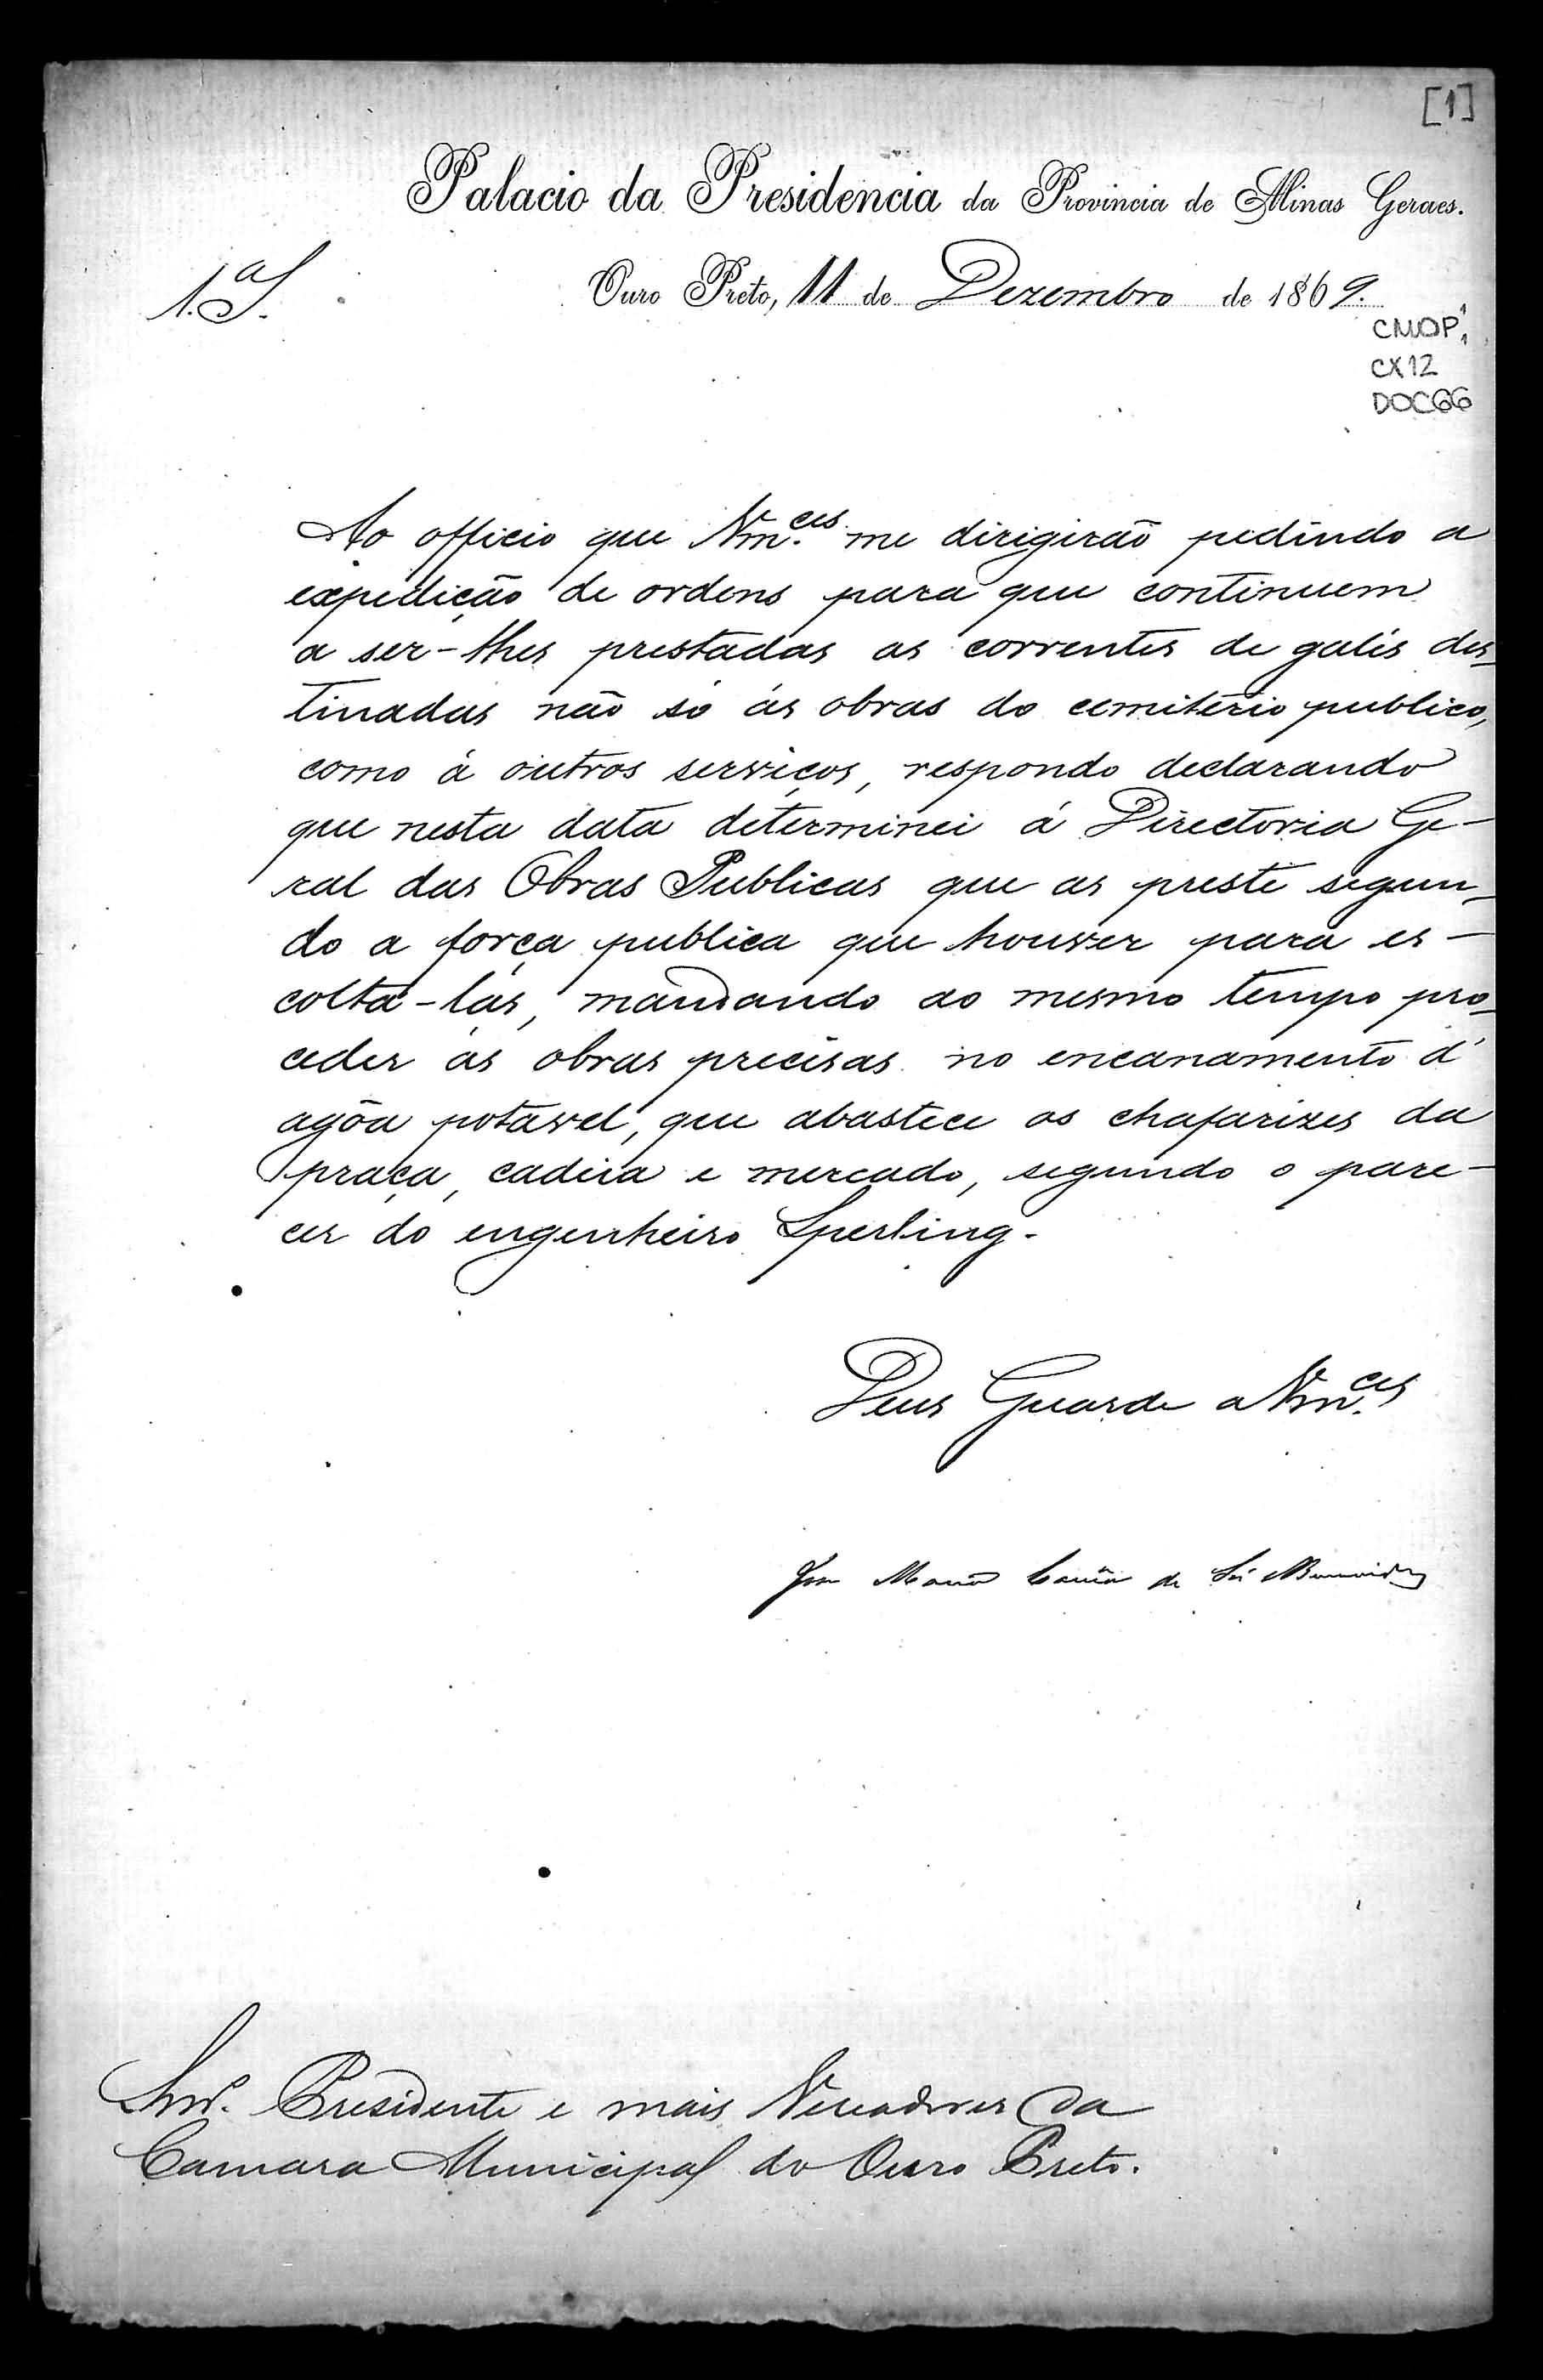 [1]
Palacio da Presidencia da Provincia de Minas Geraes.
1.ª S.
Ouro Preto, 11 de Dezembro de 1869.
CMOP 1,1
CX12
DOC66
Ao officio que Vm.ces me dirigirão pedindo a
expedição de ordens para que continuem
a ser-lhes prestadas as correntes de galés des-
tinadas não só ás obras do cemiterio publico,
como á outros serviços, respondo declarando
que nesta data determinei á Directoria Ge-
ral das Obras Publicas que as preste segun-
do a força publica que houver para es-
coltá-las, mandando ao mesmo tempo pro-
ceder ás obras precisas no encanamento d'
agôa potavel, que abastece os chafarizes da
praça, cadeia e mercado, segundo o pare-
cer do engenheiro Sperling.
Deus Guarde a Vm.ces
José Maria Corrêa de Sá Benevides
Snr.s Presidente e mais Vereadores da
Camara Municipal do Ouro Preto.